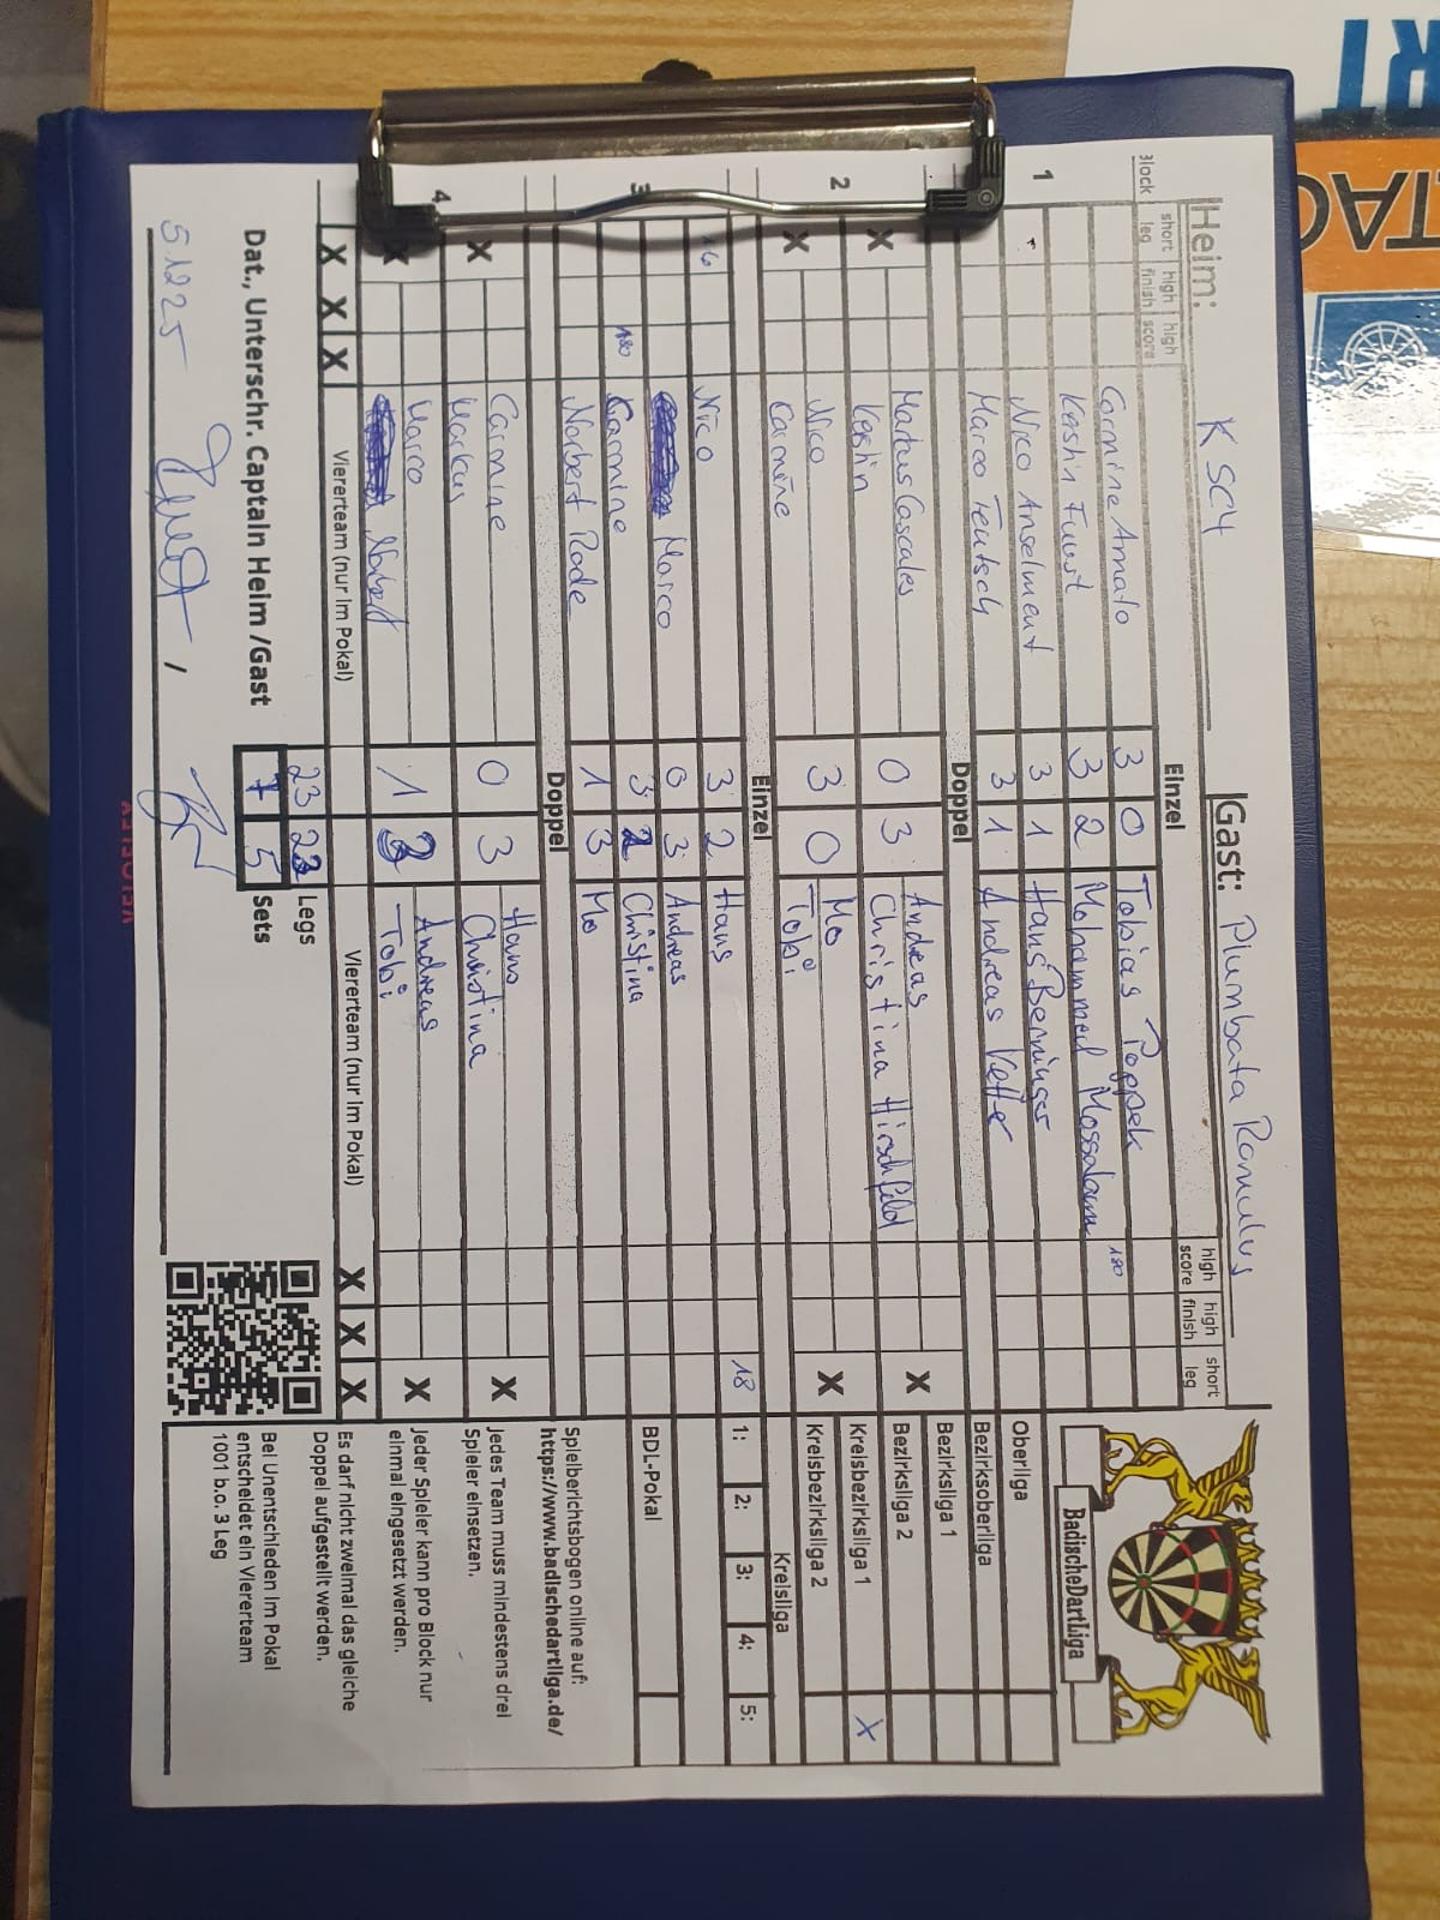 RT
Heim: K SC4 Gast: Plumbata Romulus
Block short leg high finish high score Einzel high score high finish short leg
1 Carmine Amato 3 0 Tobias Poppek 180
Kerstin Furst 3 2 Mohammed Mossalam
Nico Anselment 3 1 Hans Berninger
Marco Teutsch 3 1 Andreas Vetter
Doppel
2 Markus Cascales Andreas
X Kerstin 0 3 Christina Hirschfeld X
Nico Mo
X Carmine 3 0 Tobi X
Einzel
3 16 Nico 3 2 Hans 18
Marco 0 3 Andreas
180 Carmine 3 2 Christina
Norbert Rode 1 3 Mo
Doppel
4 Carmine Hans
X Markus 0 3 Christina X
Marco Andreas
X Norbert 1 3 Tobi X
X X X Viererteam (nur im Pokal) Viererteam (nur im Pokal) X X X
23 Legs
Dat., Unterschr. Captain Heim /Gast 7 5 Sets
5 12 25 /
BadischeDartLiga
Oberliga
Bezirksoberliga
Bezirksliga 1
Bezirksliga 2
Kreisbezirksliga 1 X
Kreisbezirksliga 2
Kreisliga
1: 2: 3: 4: 5:
BDL-Pokal
Spielberichtsbogen online auf:
https://www.badischedartliga.de/
Jedes Team muss mindestens drei
Spieler einsetzen.
Jeder Spieler kann pro Block nur
einmal eingesetzt werden.
Es darf nicht zweimal das gleiche
Doppel aufgestellt werden.
Bei Unentschieden im Pokal
entscheidet ein Viererteam
1001 b.o. 3 Leg